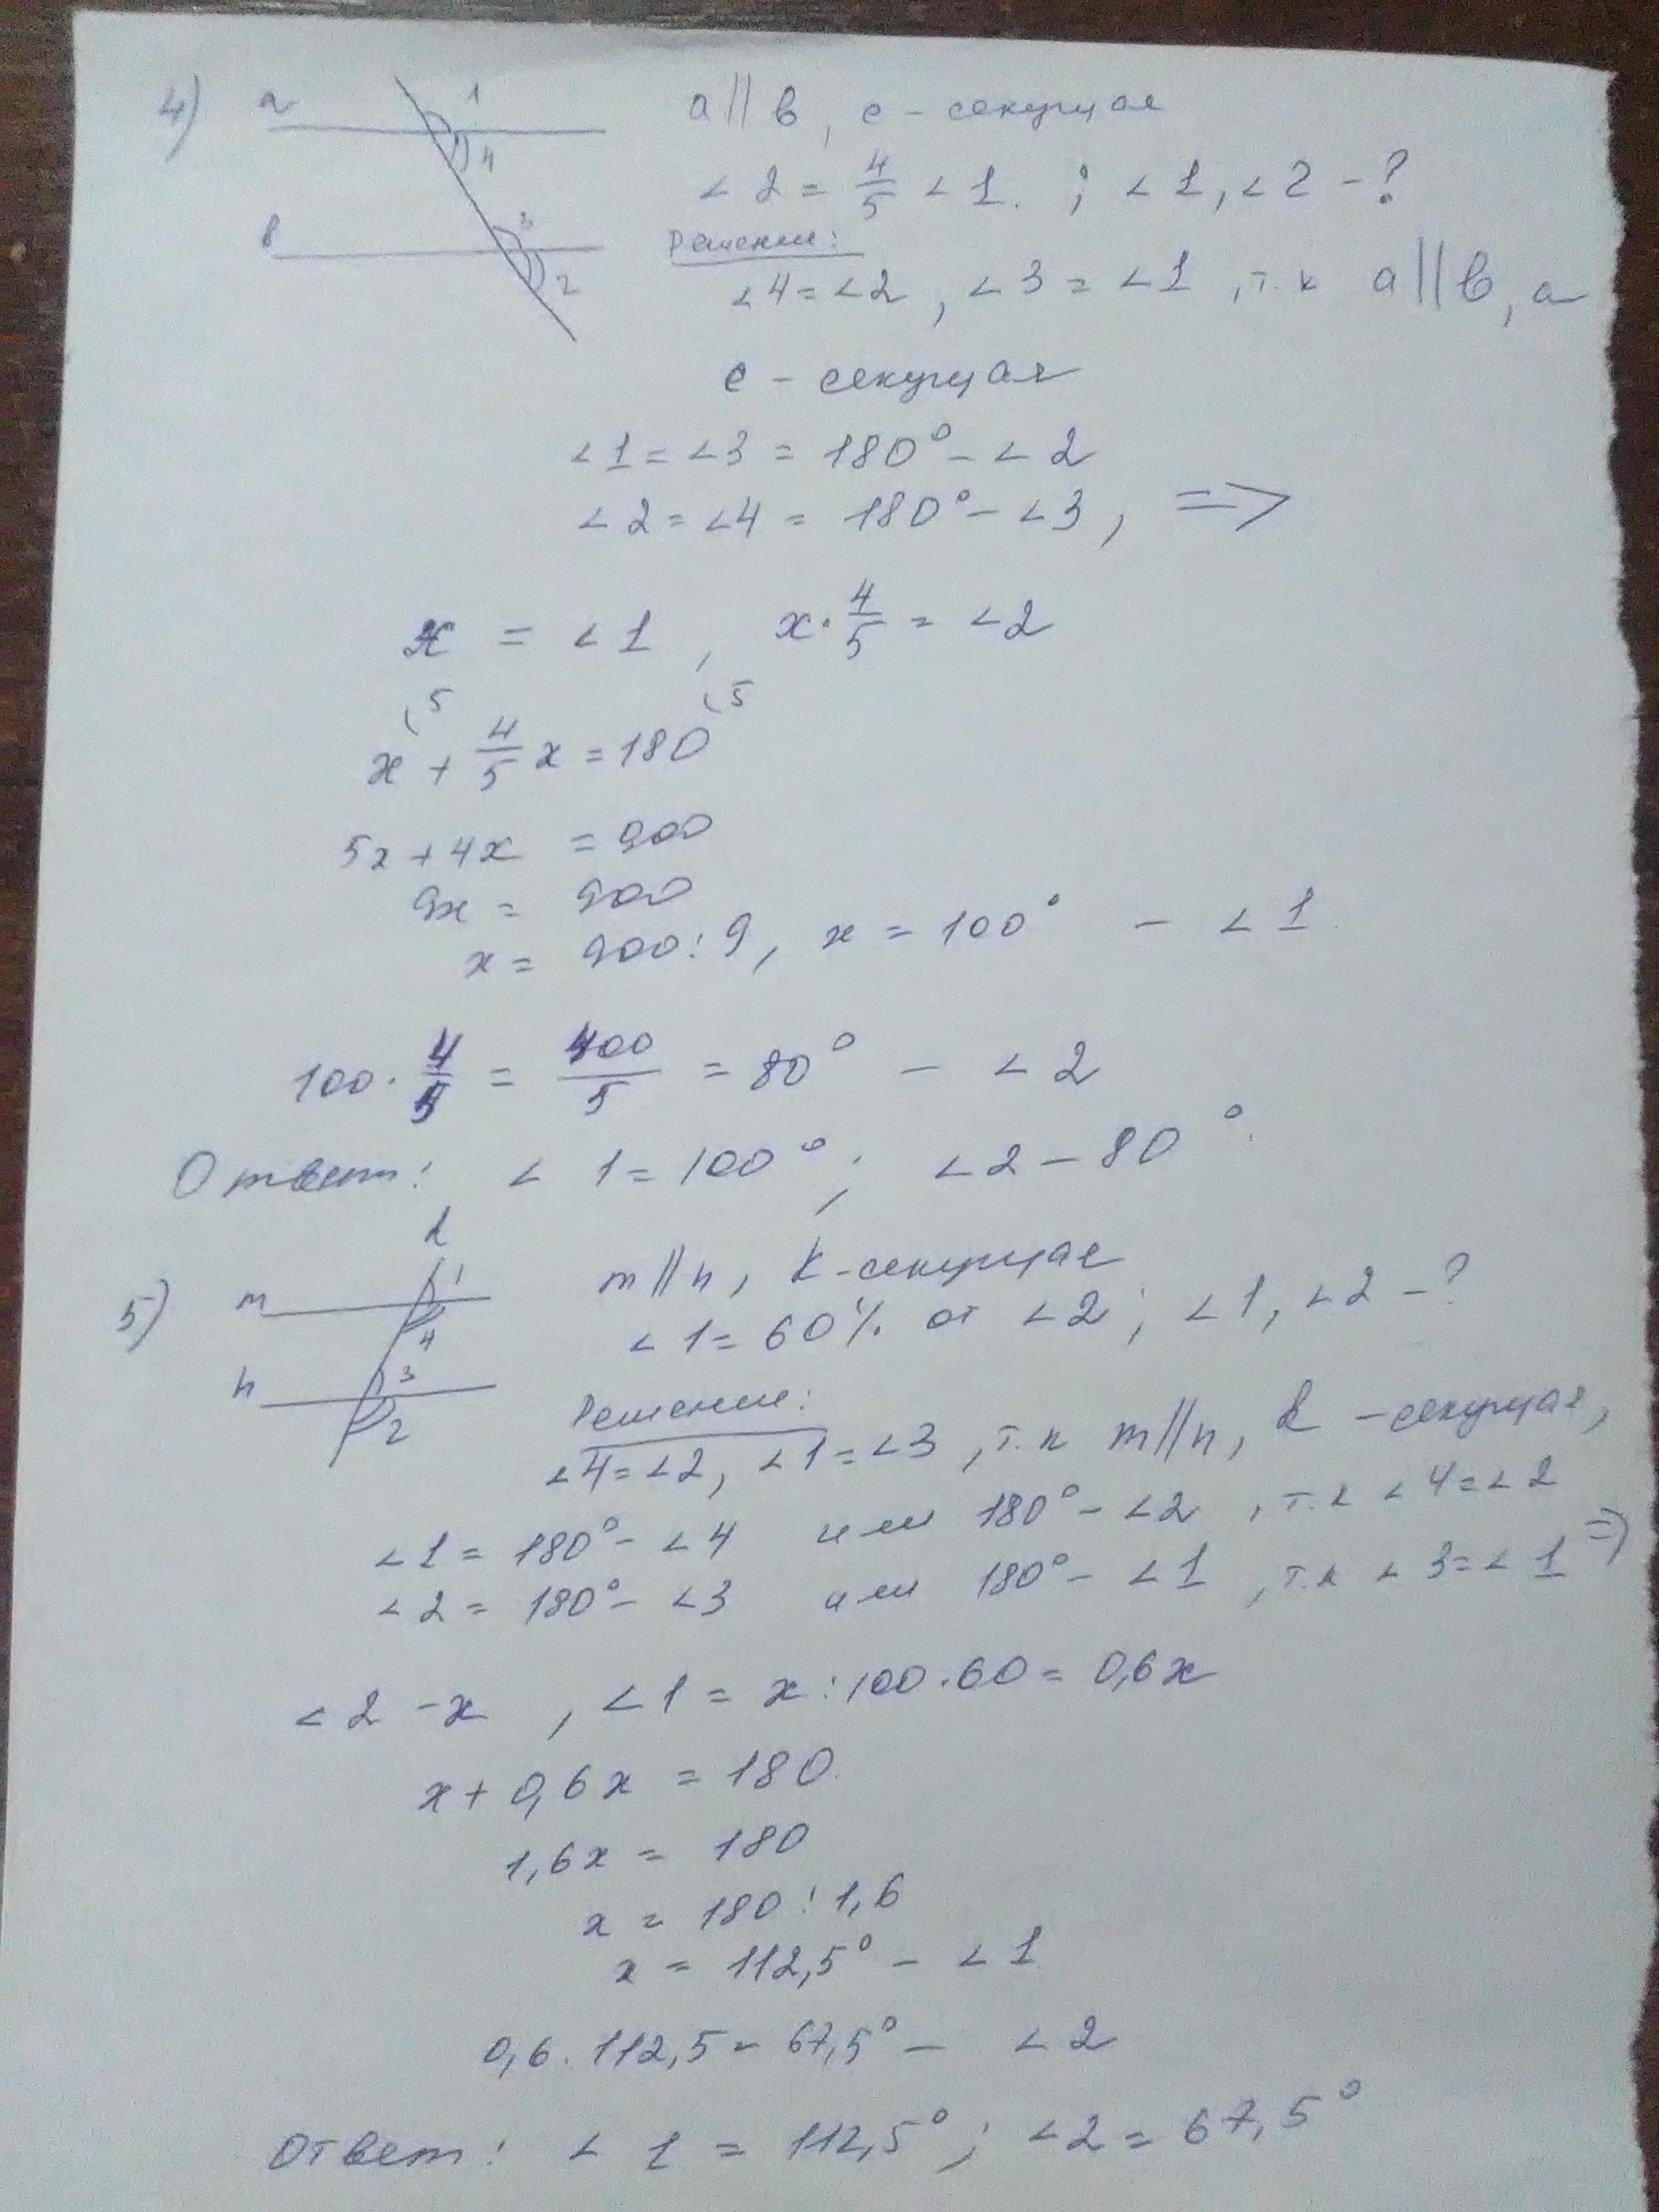 4) a 1 a || b, c - секущая
4 ∠2 = 4/5 ∠1. ; ∠1, ∠2 - ?
b 3 Решение:
2 ∠4 = ∠2, ∠3 = ∠1, т.к a || b, а
c - секущая
∠1 = ∠3 = 180° - ∠2
∠2 = ∠4 = 180° - ∠3, =>
x = ∠1, x · 4/5 = ∠2
(5 (5
x + 4/5 x = 180
5x + 4x = 900
9x = 900
x = 900 : 9, x = 100° - ∠1.
100 · 4/5 = 400/5 = 80° - ∠2
Ответ: ∠1 = 100°; ∠2 - 80°.
k
5) m 1 m || n, k - секущая
4 ∠1 = 60% от ∠2; ∠1, ∠2 - ?
n 3 Решение:
2 ∠4 = ∠2, ∠1 = ∠3, т.к m || n, k - секущая,
∠1 = 180° - ∠4 или 180° - ∠2, т.к ∠4 = ∠2
∠2 = 180° - ∠3 или 180° - ∠1, т.к ∠3 = ∠1 =>
∠2 - x, ∠1 = x : 100 · 60 = 0,6x
x + 0,6x = 180.
1,6x = 180
x = 180 : 1,6
x = 112,5° - ∠1
0,6 · 112,5 = 67,5° - ∠2
Ответ: ∠1 = 112,5°; ∠2 = 67,5°